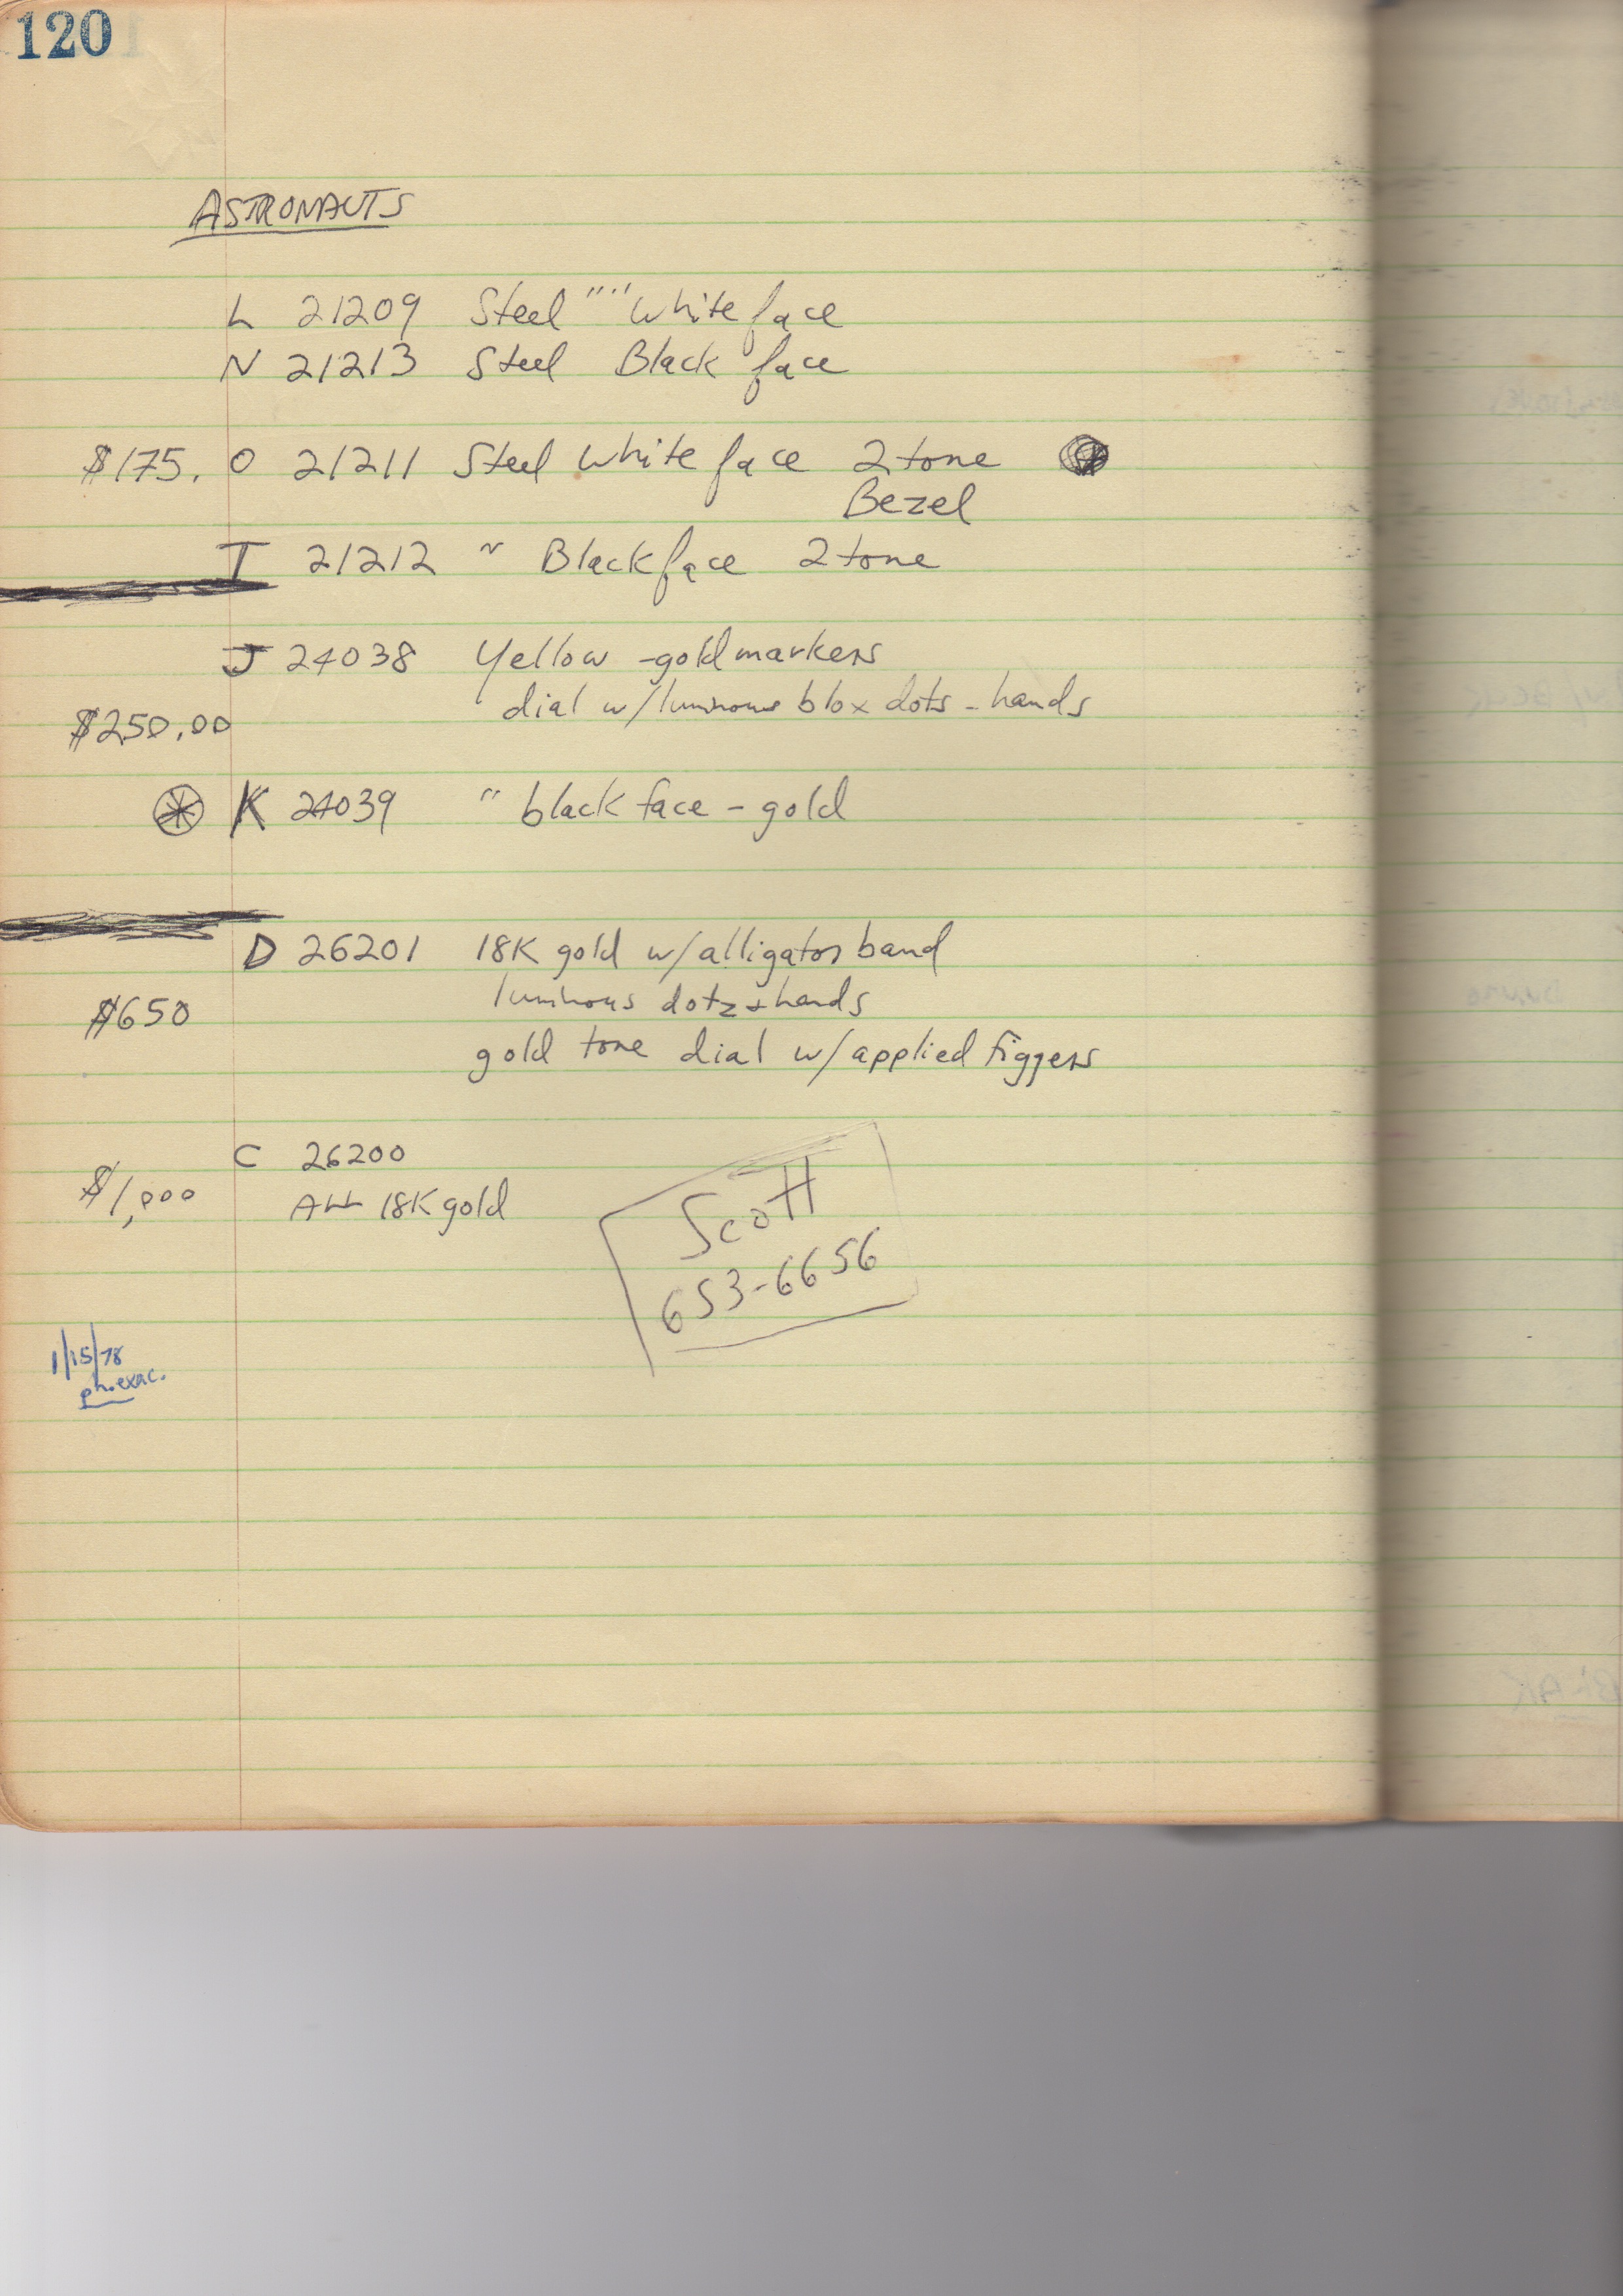 120
ASTRONAUTS
L 21209 Steel """ White face
N 21213 Steel Black face
$175. O 21211 Steel White face 2 tone
Bezel
I 21212 " Black face 2 tone
J 24038 Yellow - gold markers
dial w/ luminous blox dots - hands
$250.00
K 24039 " black face - gold
D 26201 18K gold w/ alligator band
luminous dotz + hands
$650
gold tone dial w/ applied figgers
C 26200
$1,000
ALL 18K gold
Scott
653-6656
1/15/78
BLAK